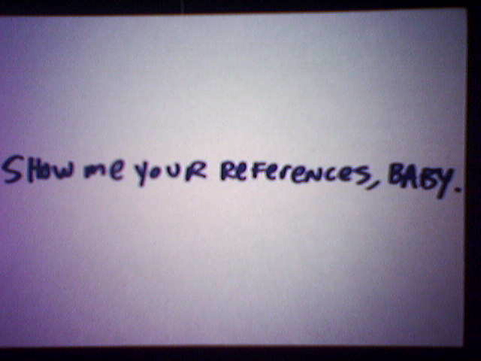 Show me your references, BABY.